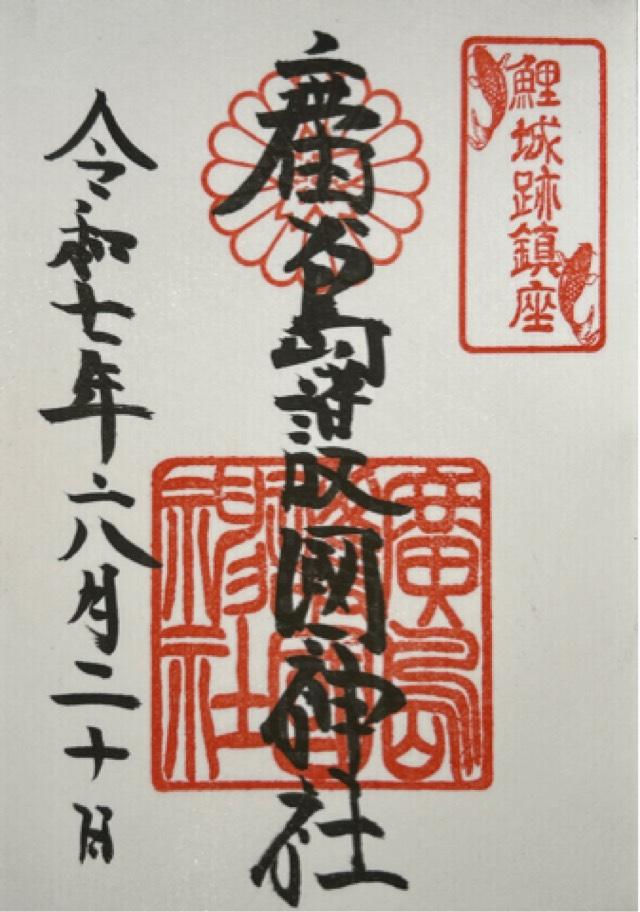 鯉城跡鎮座
廣島護國神社
令和七年六月二十日
廣島
神社